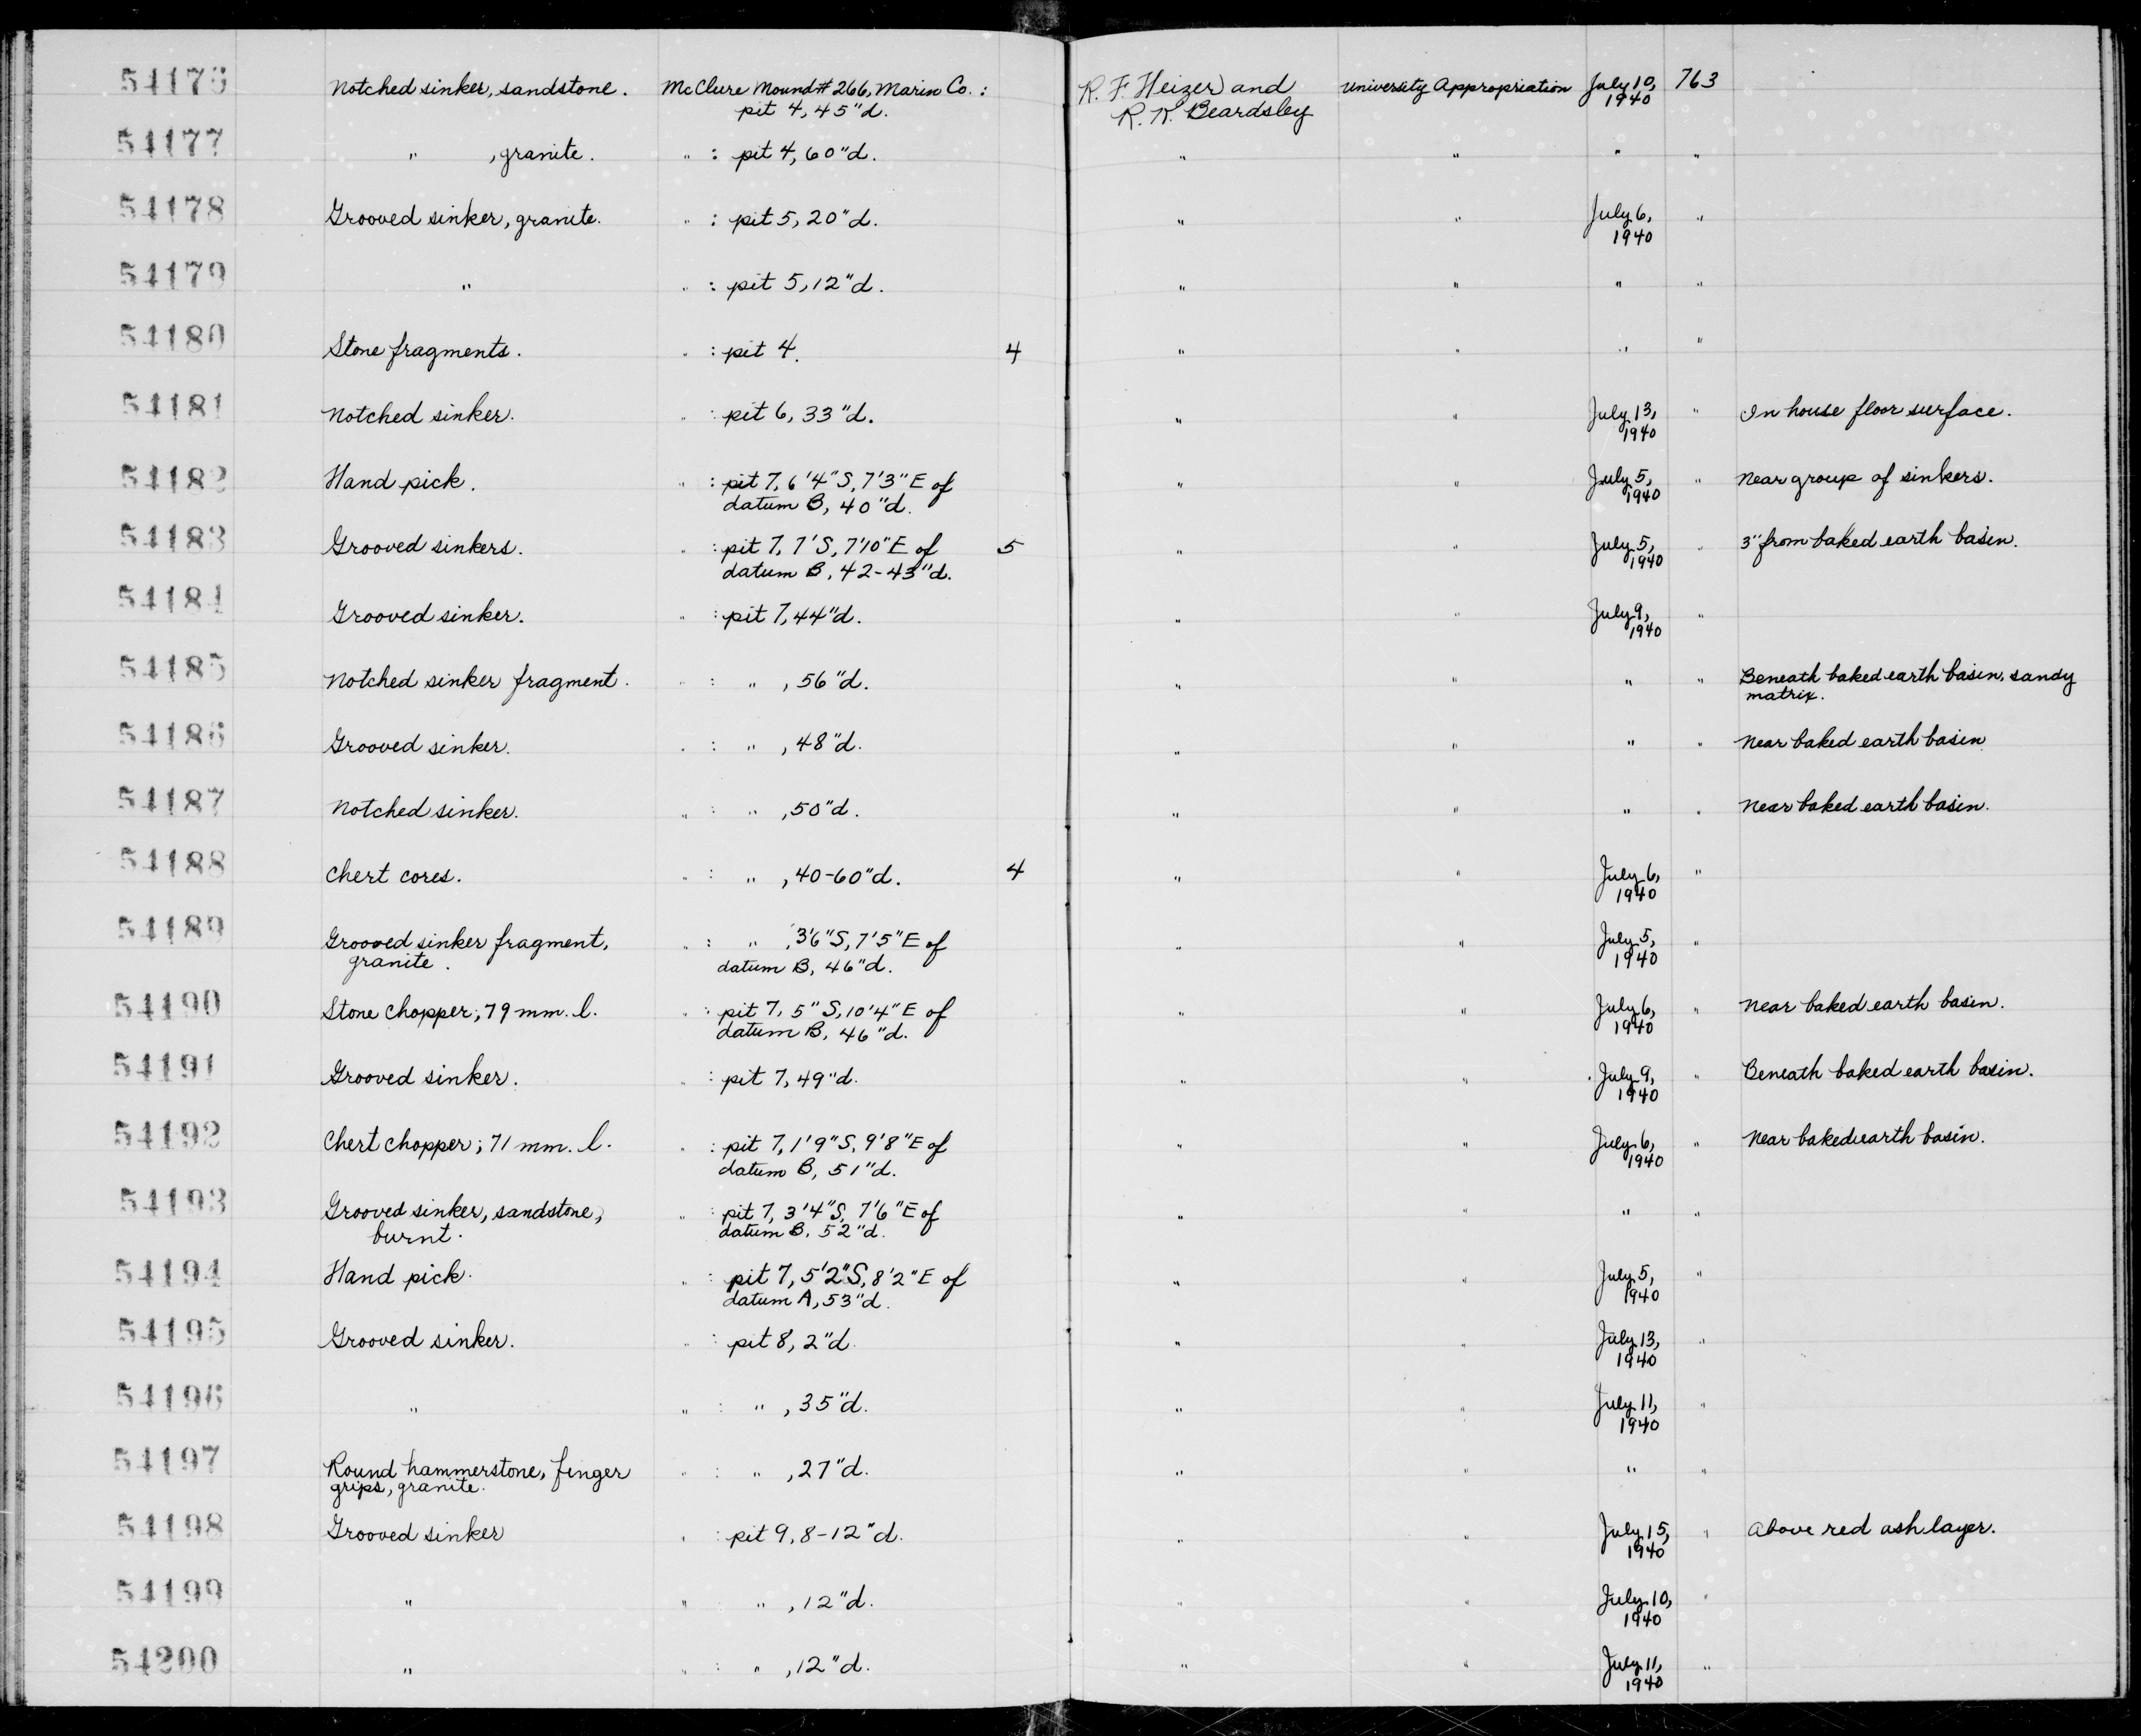 54176 Notched sinker, sandstone. McClure Mound #266, Marin Co.: R. F. Heizer and University Appropriation July 10, 763
pit 4, 45"d. R. K. Beardsley 1940
54177 " , granite. " : pit 4, 60"d. " " " "
54178 Grooved sinker, granite. " : pit 5, 20"d. " " July 6, "
1940
54179 " " : pit 5, 12"d. " " " "
54180 Stone fragments. " : pit 4. 4 " " " "
54181 Notched sinker. " : pit 6, 33"d. " " July 13, " In house floor surface.
1940
54182 Hand pick. " : pit 7, 6'4"S, 7'3"E of " " July 5, " Near group of sinkers.
datum B, 40"d. 1940
54183 Grooved sinkers. " : pit 7, 7'S, 7'10"E of 5 " " July 5, " 3" from baked earth basin.
datum B, 42-43"d. 1940
54184 Grooved sinker. " : pit 7, 44"d. " " July 9, "
1940
54185 Notched sinker fragment. " : " , 56"d. " " " " Beneath baked earth basin, sandy
matrix.
54186 Grooved sinker. " : " , 48"d. " " " " Near baked earth basin
54187 Notched sinker. " : " , 50"d. " " " " Near baked earth basin.
54188 Chert cores. " : " , 40-60"d. 4 " " July 6, "
1940
54189 Grooved sinker fragment, " : " , 3'6"S, 7'5"E of " " July 5, "
granite. datum B, 46"d. 1940
54190 Stone chopper; 79 mm. l. " : pit 7, 5"S, 10'4"E of " " July 6, " Near baked earth basin.
datum B, 46"d. 1940
54191 Grooved sinker. " : pit 7, 49"d. " " July 9, " Beneath baked earth basin.
1940
54192 Chert chopper; 71 mm. l. " : pit 7, 1'9"S, 9'8"E of " " July 6, " Near baked earth basin.
datum B, 51"d. 1940
54193 Grooved sinker, sandstone, " : pit 7, 3'4"S, 7'6"E of " " " "
burnt. datum B, 52"d.
54194 Hand pick. " : pit 7, 5'2"S, 8'2"E of " " July 5, "
datum A, 53"d. 1940
54195 Grooved sinker. " : pit 8, 2"d. " " July 13, "
1940
54196 " " : " , 35"d. " " July 11, "
1940
54197 Round hammerstone, finger " : " , 27"d. " " " "
grips, granite.
54198 Grooved sinker " : pit 9, 8-12"d. " " July 15, " Above red ash layer.
1940
54199 " " " , 12"d. " " July 10, "
1940
54200 " " : " , 12"d. " " July 11, "
1940